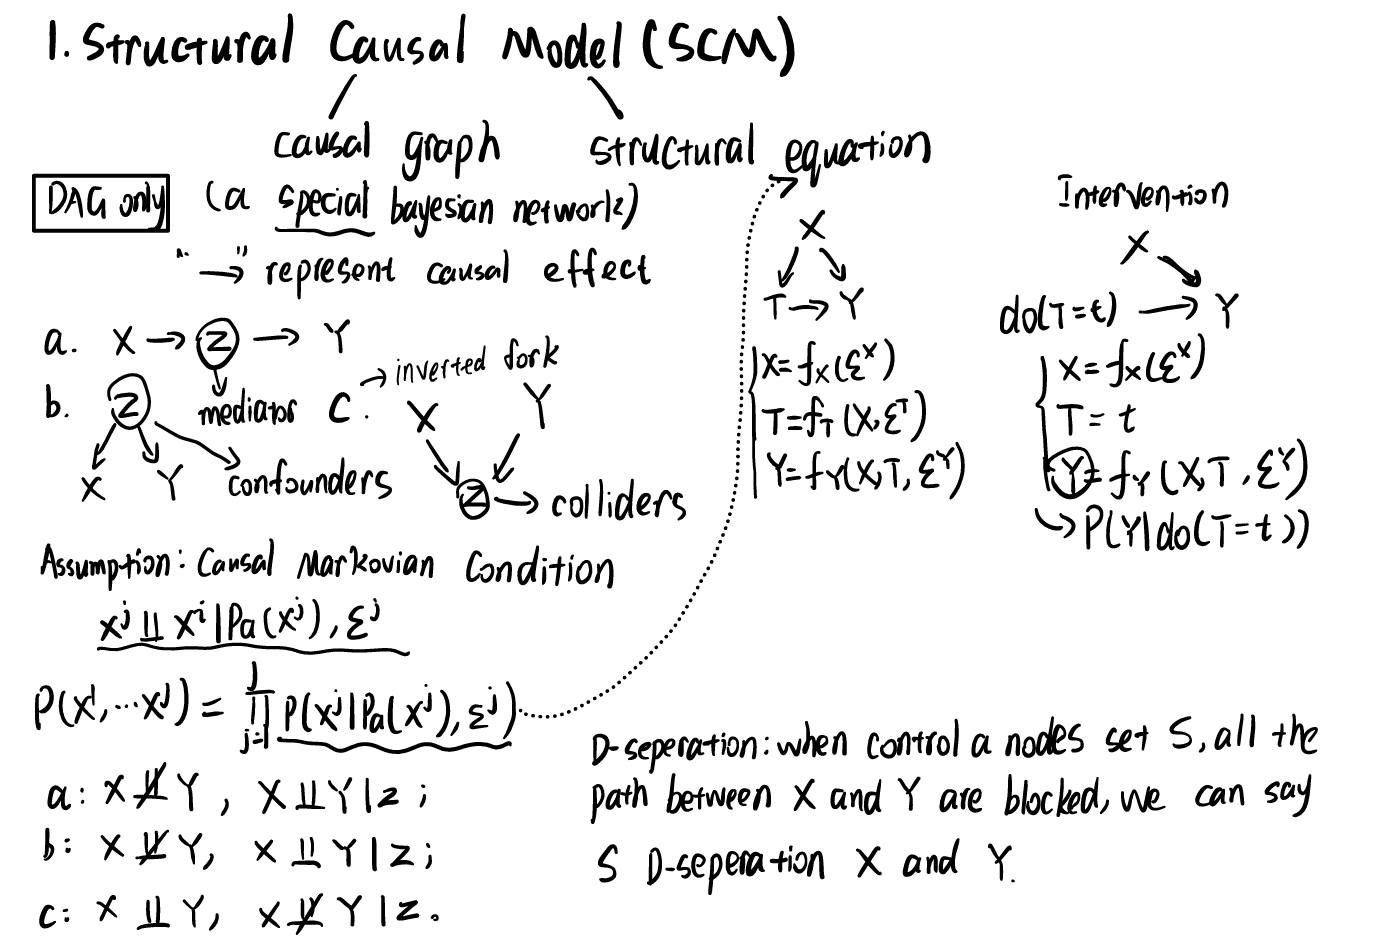 1. Structural Causal Model (SCM)
causal graph
structural equation
DAG only
(a special bayesian network)
"→" represent causal effect
a. X → Z → Y
mediator
b. Z
X Y
confounders
c. → inverted fork
X Y
Z → colliders
Assumption: Causal Markovian Condition
x^j ⫫ x^i | Pa(x^j), ε^j
P(x^1, ... x^J) = ∏_{j=1}^{J} P(x^j | Pa(x^j), ε^j)
a: X ⫫̸ Y, X ⫫ Y | Z;
b: X ⫫̸ Y, X ⫫ Y | Z;
c: X ⫫ Y, X ⫫̸ Y | Z.
X
T → Y
X = f_X(ε^X)
T = f_T(X, ε^T)
Y = f_Y(X, T, ε^Y)
Intervention
X
do(T=t) → Y
X = f_X(ε^X)
T = t
Y = f_Y(X, T, ε^Y)
↪ P(Y | do(T=t))
D-seperation: when control a nodes set S, all the
path between X and Y are blocked, we can say
S D-seperation X and Y.